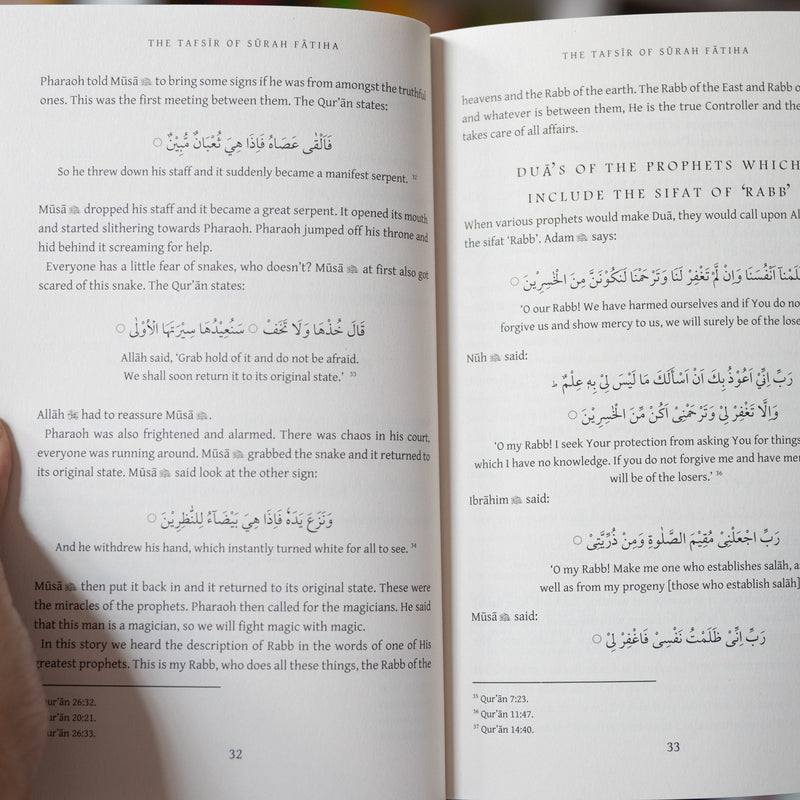 THE TAFSĪR OF SŪRAH FĀTIHA
Pharaoh told Mūsā ﷺ to bring some signs if he was from amongst the truthful
ones. This was the first meeting between them. The Qur’ān states:
فَاَلْقٰى عَصَاهُ فَاِذَا هِيَ ثُعْبَانٌ مُّبِيْنٌ ○
So he threw down his staff and it suddenly became a manifest serpent. ³²
Mūsā dropped his staff and it became a great serpent. It opened its mouth
and started slithering towards Pharaoh. Pharaoh jumped off his throne and
hid behind it screaming for help.
Everyone has a little fear of snakes, who doesn’t? Mūsā at first also got
scared of this snake. The Qur’ān states:
قَالَ خُذْهَا وَلَا تَخَفْ ○ سَنُعِيْدُهَا سِيْرَتَهَا الْاُوْلٰى ○
Allāh said, ‘Grab hold of it and do not be afraid.
We shall soon return it to its original state.’ ³³
Allāh had to reassure Mūsā.
Pharaoh was also frightened and alarmed. There was chaos in his court,
everyone was running around. Mūsā grabbed the snake and it returned to
its original state. Mūsā said look at the other sign:
وَنَزَعَ يَدَهٗ فَاِذَا هِيَ بَيْضَآءُ لِلنّٰظِرِيْنَ ○
And he withdrew his hand, which instantly turned white for all to see. ³⁴
Mūsā then put it back in and it returned to its original state. These were
the miracles of the prophets. Pharaoh then called for the magicians. He said
that this man is a magician, so we will fight magic with magic.
In this story we heard the description of Rabb in the words of one of His
greatest prophets. This is my Rabb, who does all these things, the Rabb of the
ur’ān 26:32.
ur’ān 20:21.
ur’ān 26:33.
32
THE TAFSĪR OF SŪRAH FĀTIHA
heavens and the Rabb of the earth. The Rabb of the East and Rabb
and whatever is between them, He is the true Controller and the
takes care of all affairs.
DUĀ’S OF THE PROPHETS WHICH
INCLUDE THE SIFAT OF ‘RABB’
When various prophets would make Duā, they would call upon Al
the sifat ‘Rabb’. Adam says:
لَمْنَآ اَنْفُسَنَا وَاِنْ لَّمْ تَغْفِرْ لَنَا وَتَرْحَمْنَا لَنَكُوْنَنَّ مِنَ الْخٰسِرِيْنَ ○
‘O our Rabb! We have harmed ourselves and if You do no
forgive us and show mercy to us, we will surely be of the lose
Nūh said:
رَبِّ اِنِّيْ اَعُوْذُ بِكَ اَنْ اَسْاَلَكَ مَا لَيْسَ لِيْ بِهٖ عِلْمٌ ط
وَاِلَّا تَغْفِرْ لِيْ وَتَرْحَمْنِيْ اَكُنْ مِّنَ الْخٰسِرِيْنَ ○
‘O my Rabb! I seek Your protection from asking You for things
which I have no knowledge. If you do not forgive me and have mer
will be of the losers.’ ³⁶
Ibrāhim said:
رَبِّ اجْعَلْنِيْ مُقِيْمَ الصَّلٰوةِ وَمِنْ ذُرِّيَّتِيْ ○
‘O my Rabb! Make me one who establishes salāh, a
well as from my progeny [those who establish salāh]
Mūsā said:
رَبِّ اِنِّيْ ظَلَمْتُ نَفْسِيْ فَاغْفِرْ لِيْ ○
³⁵ Qur’ān 7:23.
³⁶ Qur’ān 11:47.
³⁷ Qur’ān 14:40.
33